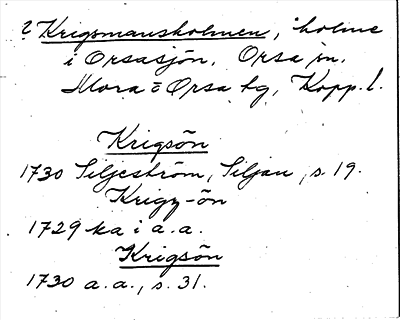 ? Krigsmansholmen, holme
i Orsasjön, Orsa sn.
Mora = Orsa tg, Kopp. l.
Krigsön
1730 Siljeström, Siljan, s 19.
Krigz-ön
1729 ka i a.a.
Krigsön
1730 a.a., s. 31.